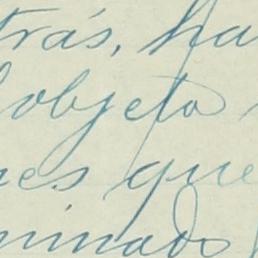 trás, ha
objeto
nes que
minado